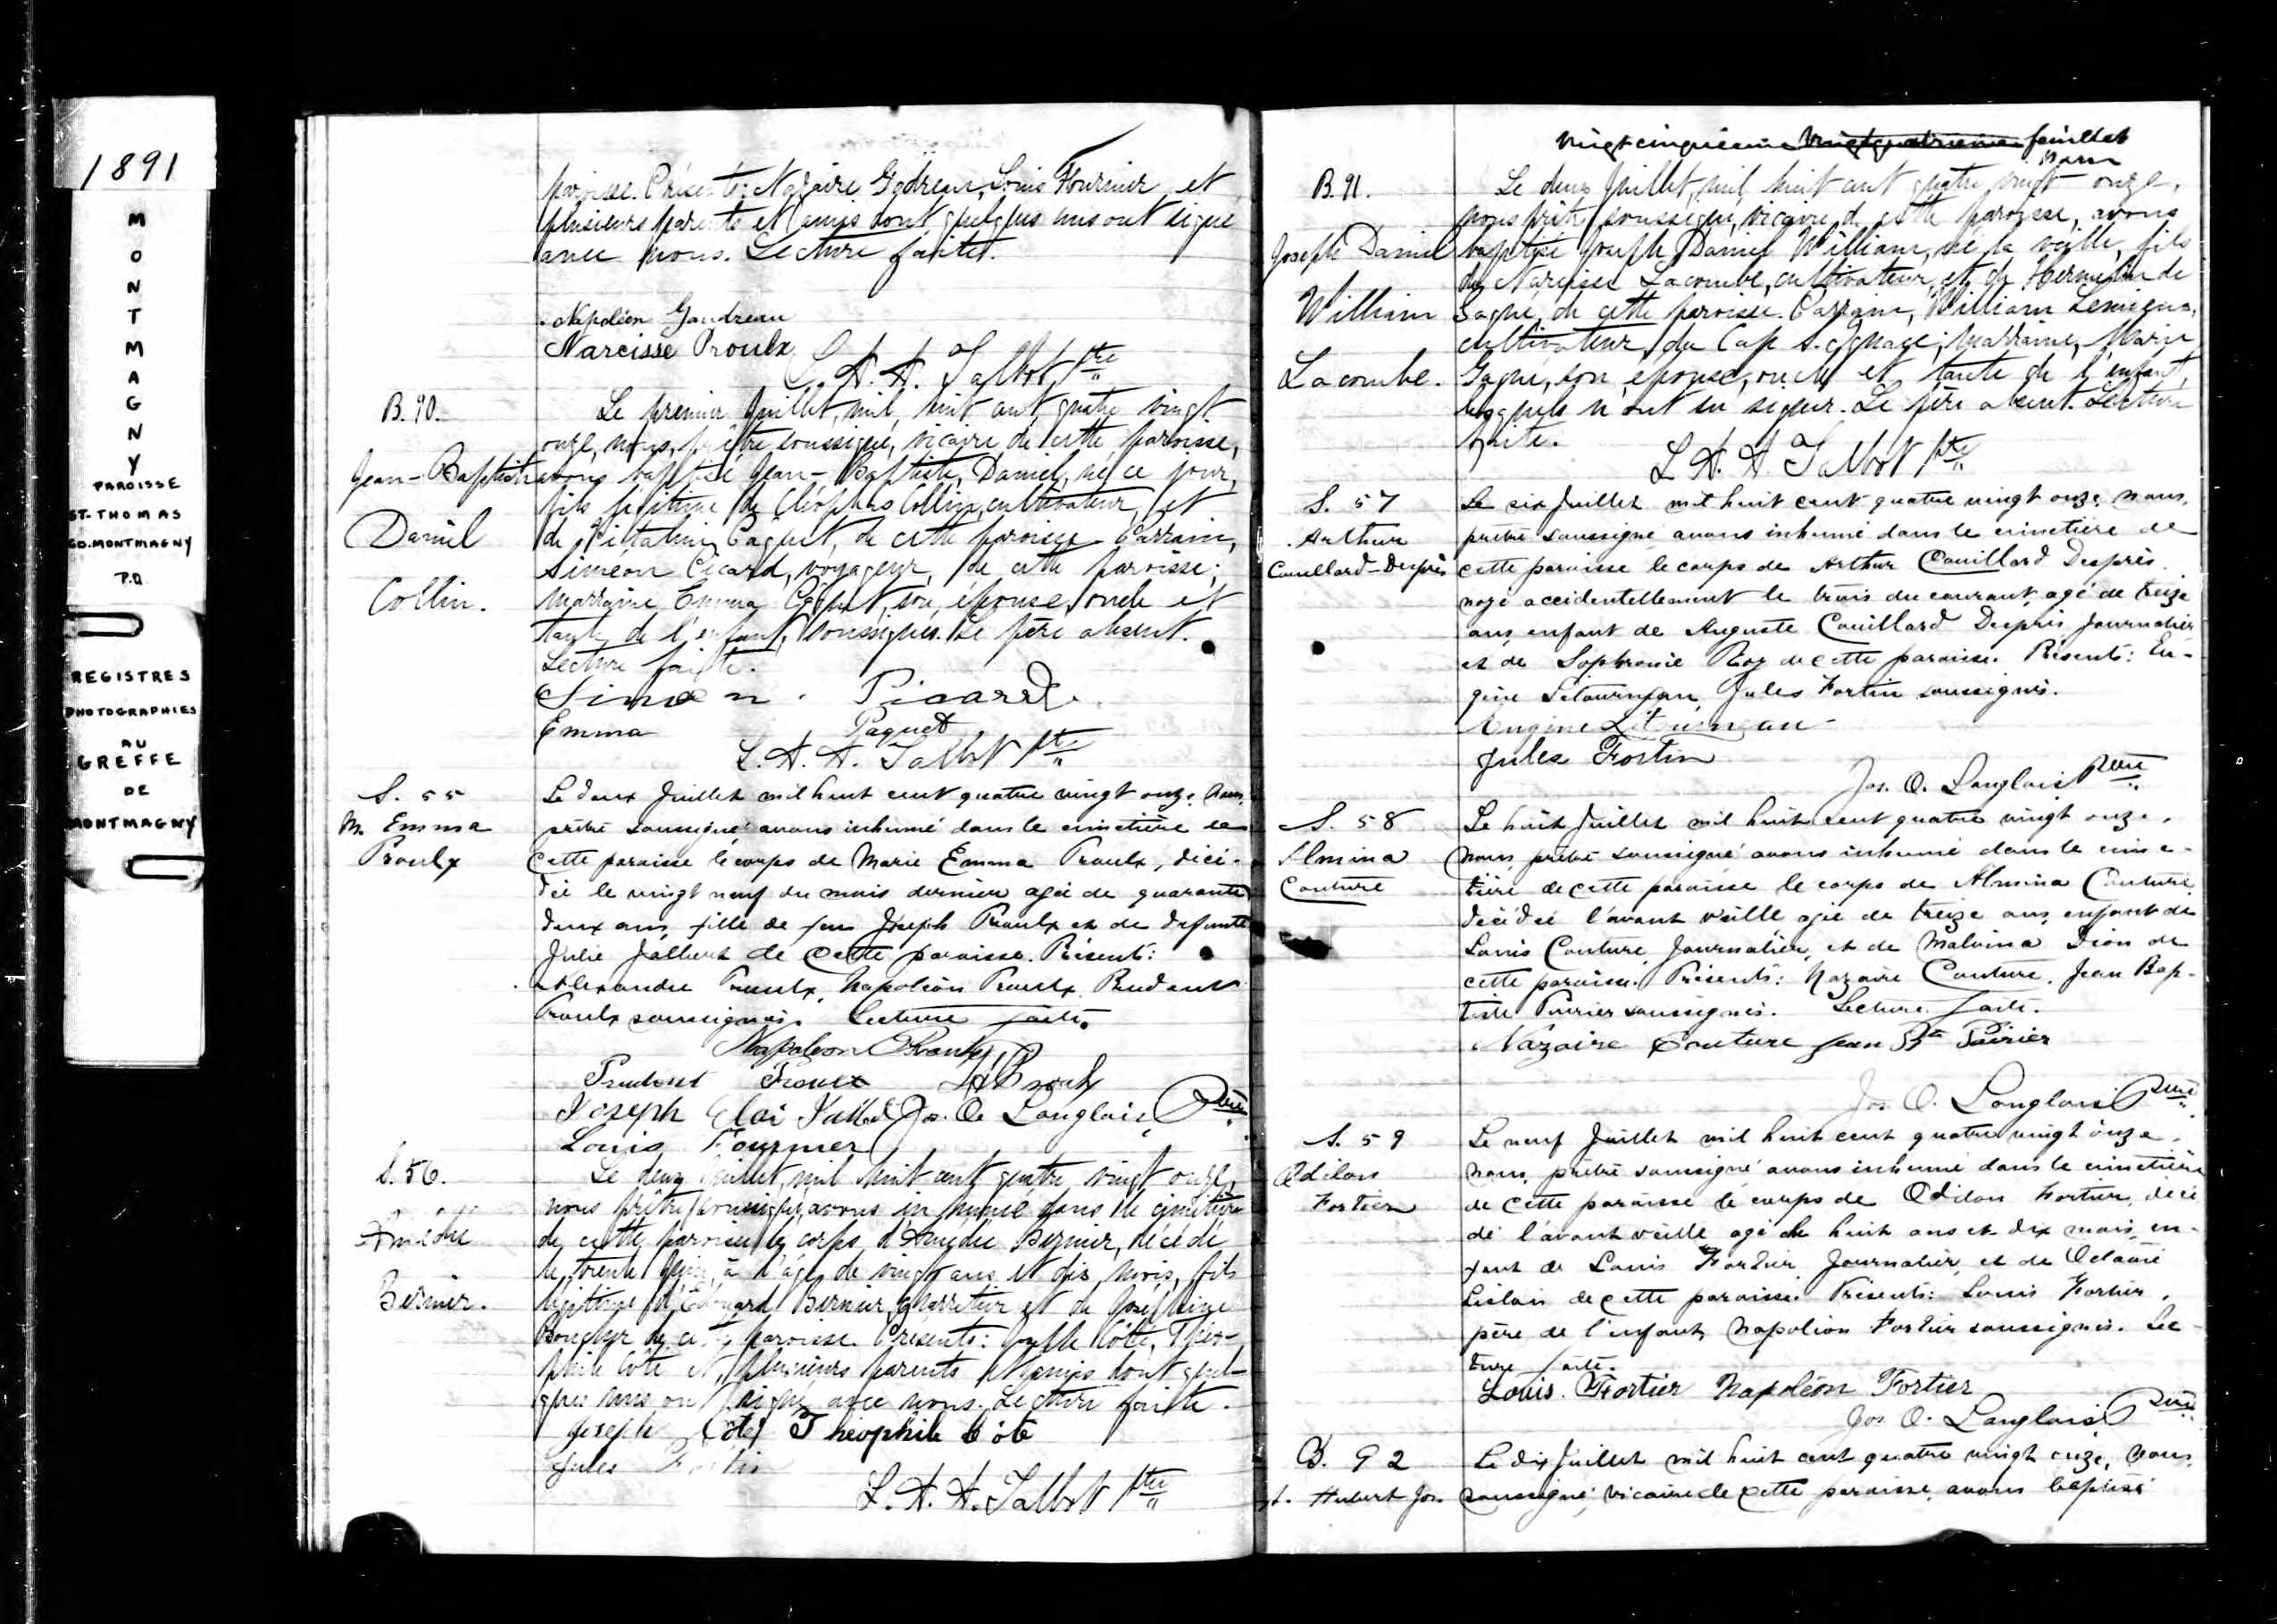 1891
MONTMAGNY
PAROISSE
ST-THOMAS
CO. MONTMAGNY
P.Q.
REGISTRES
PHOTOGRAPHIES
AU
GREFFE
DE
MONTMAGNY
paroisse. Présents: Nazaire Godreau, Louis Fournier et
plusieurs parents et amis dont quelques uns ont signé
avec nous. Lecture faite.
Napoléon Gaudreau
Narcisse Proulx
L. A. A. Talbot Ptre
B. 90.
Jean-Baptiste
Daniel
Collin.
Le premier Juillet, mil huit cent quatre vingt
onze, nous, prêtre soussigné, vicaire de cette paroisse,
avons baptisé Jean-Baptiste, Daniel, né ce jour,
fils légitime de Cléophas Collin, cultivateur, et
de Vitaline Paquet, de cette paroisse. Parrain,
Siméon Picard, voyageur, de cette paroisse;
marraine Emma Paquet, son épouse, oncle et
tante de l'enfant, soussignés. Le père absent.
Lecture faite.
Simeon Picard
Emma Paquet
L. A. A. Talbot Ptre
S. 55
M. Emma
Proulx
Le deux Juillet mil huit cent quatre vingt onze, nous,
prêtre soussigné avons inhumé dans le cimetière de
cette paroisse le corps de Marie Emma Proulx, décé-
dée le vingt neuf du mois dernier agée de quarante
deux ans, fille de feu Joseph Proulx et de défunte
Julie Jalbert de cette paroisse. Présents:
Alexandre Proulx, Napoléon Proulx, Prudent
Proulx soussignés. Lecture faite.
Napoleon Proulx
Prudent Proulx
Joseph Eloi Jos. O. Langlois, Ptre
Louis Fournier
S. 56.
Amédée
Bernier.
Le deux Juillet, mil huit cent quatre vingt onze,
nous prêtre soussigné, avons inhumé dans le cimetière
de cette paroisse le corps d'Amédée Bernier, décédé
le trente Juin, à l'âge de vingt ans et dix mois, fils
légitime d'Edouard Bernier, charretier et de Joséphine
Boucher de cette paroisse. Présents: Joseph Côté, Théo-
phile Côté et plusieurs parents et amis dont quel-
ques uns ont signé avec nous. Lecture faite.
Joseph Coté Théophile Côté
Jules Fortin
L. A. A. Talbot Ptre
vingt cinquième vingt quatrième feuillet
B. 91.
Joseph Daniel
William
Lacombe.
Le deux Juillet, mil huit cent quatre vingt onze,
nous prêtre soussigné, vicaire de cette paroisse, avons
baptisé Joseph Daniel William, né la veille, fils
de Narcisse Lacombe, cultivateur, et de Hermelinde
Gagné, de cette paroisse. Parrain, William Lemieux,
cultivateur du Cap S. Ignace; marraine, Marie
Gagné, son épouse, oncle et tante de l'enfant,
lesquels n'ont su signer. Le père absent. Lecture
faite.
L. A. A. Talbot Ptre
S. 57
Arthur
Couillard-Després
Le six Juillet mil huit cent quatre vingt onze, nous,
prêtre soussigné avons inhumé dans le cimetière de
cette paroisse le corps de Arthur Couillard Després
noyé accidentellement le trois du courant, agé de treize
ans, enfant de Auguste Couillard Després, Journalier
et de Sophronie Roy de cette paroisse. Présents: Eu-
gène Létourneau, Jules Fortin soussignés.
Eugène Létourneau
Jules Fortin
Jos. O. Langlois Ptre
S. 58
Almina
Couture
Le huit Juillet mil huit cent quatre vingt onze,
nous, prêtre soussigné avons inhumé dans le cime-
tière de cette paroisse le corps de Almina Couture
décédée l'avant veille agée de treize ans, enfant de
Louis Couture, Journalier, et de Malvina Dion de
cette paroisse. Présents: Nazaire Couture, Jean Bap-
tiste Poirier soussignés. Lecture faite.
Nazaire Couture Jean Bte Poirier
Jos. O. Langlois Ptre
S. 59
Odilon
Fortier
Le neuf Juillet mil huit cent quatre vingt onze,
nous, prêtre soussigné avons inhumé dans le cimetière
de cette paroisse le corps de Odilon Fortier, décé
dé l'avant veille agé de huit ans et dix mois, en-
fant de Louis Fortier, Journalier, et de Octavie
de cette paroisse. Présents: Louis Fortier,
père de l'enfant, Napoléon Fortier soussignés. Lec-
ture faite.
Louis Fortier Napoléon Fortier
Jos. O. Langlois Ptre
B. 92
Hubert Jos.
Le dix Juillet mil huit cent quatre vingt onze, nous,
soussigné, vicaire de cette paroisse, avons baptisé